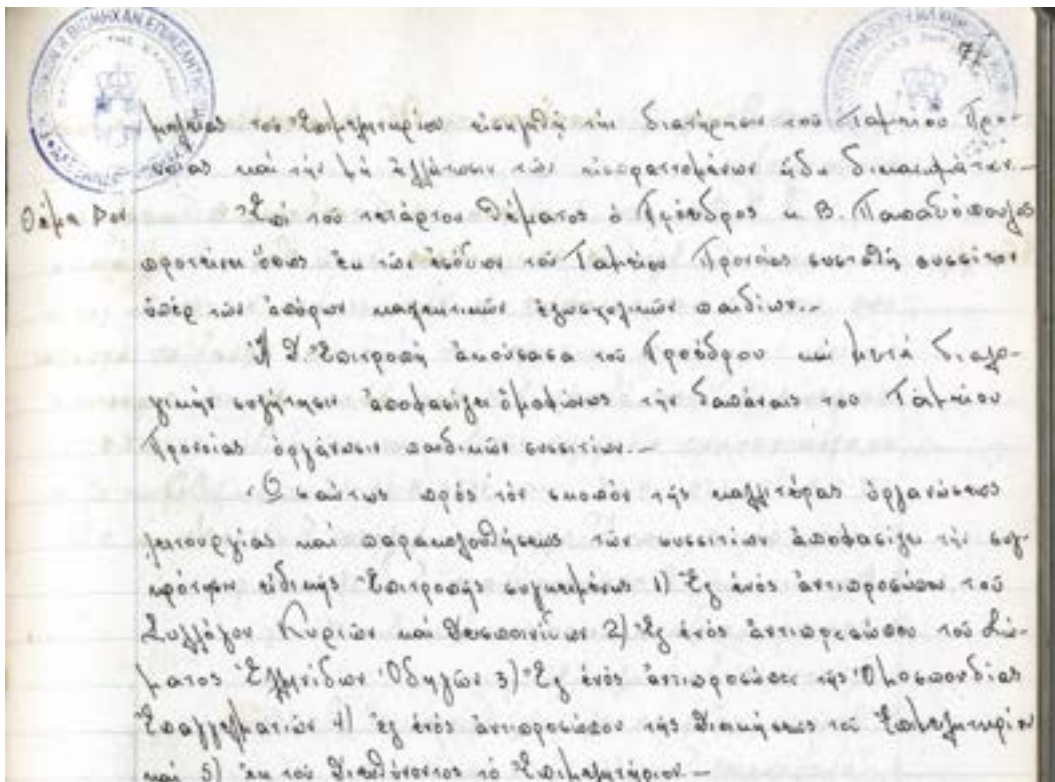 μηνίας τοῦ Ἐπιμελητηρίου εἰσηγηθῇ τὴν διατήρησιν τοῦ Ταμείου Προ-
νοίας καὶ τὴν μὴ ἐλάττωσιν τῶν εἰσπραττομένων ἤδη δικαιωμάτων.—
Θέμα 4ον Ἐπὶ τοῦ τετάρτου θέματος ὁ Πρόεδρος κ. Β. Παπαδόπουλος
προτείνει ὅπως ἐκ τῶν ἐσόδων τοῦ Ταμείου Προνοίας συσταθῇ συσσίτιον
ὑπὲρ τῶν ἀπόρων μαθητικῶν παιδίων.—
Ἡ Δ. Ἐπιτροπὴ ἀκούσασα τοῦ Προέδρου καὶ μετὰ διαλο-
γικὴν συζήτησιν ἀποφασίζει ὁμοφώνως τὴν δαπάναις τοῦ Ταμείου
Προνοίας ὀργάνωσιν παιδικῶν συσσιτίων.—
Ὡσαύτως πρὸς τὸν σκοπὸν τῆς καλλιτέρας ὀργανώσεως
λειτουργίας καὶ παρακολουθήσεως τῶν συσσιτίων ἀποφασίζει τὴν συγ-
κρότησιν εἰδικῆς Ἐπιτροπῆς συγκειμένης 1) Ἐξ ἑνὸς ἀντιπροσώπου τοῦ
Συλλόγου Κυριῶν καὶ Δεσποινίδων 2) Ἐξ ἑνὸς ἀντιπροσώπου τοῦ Σώ-
ματος Ἑλληνίδων Ὁδηγῶν 3) Ἐξ ἑνὸς ἀντιπροσώπου τῆς Ὁμοσπονδίας
Ἐπαγγελματιῶν 4) ἐξ ἑνὸς ἀντιπροσώπου τῆς Διοικήσεως τοῦ Ἐπιμελητηρίου
καὶ 5) ἐκ τοῦ Διευθύνοντος τὸ Ἐπιμελητήριον.—